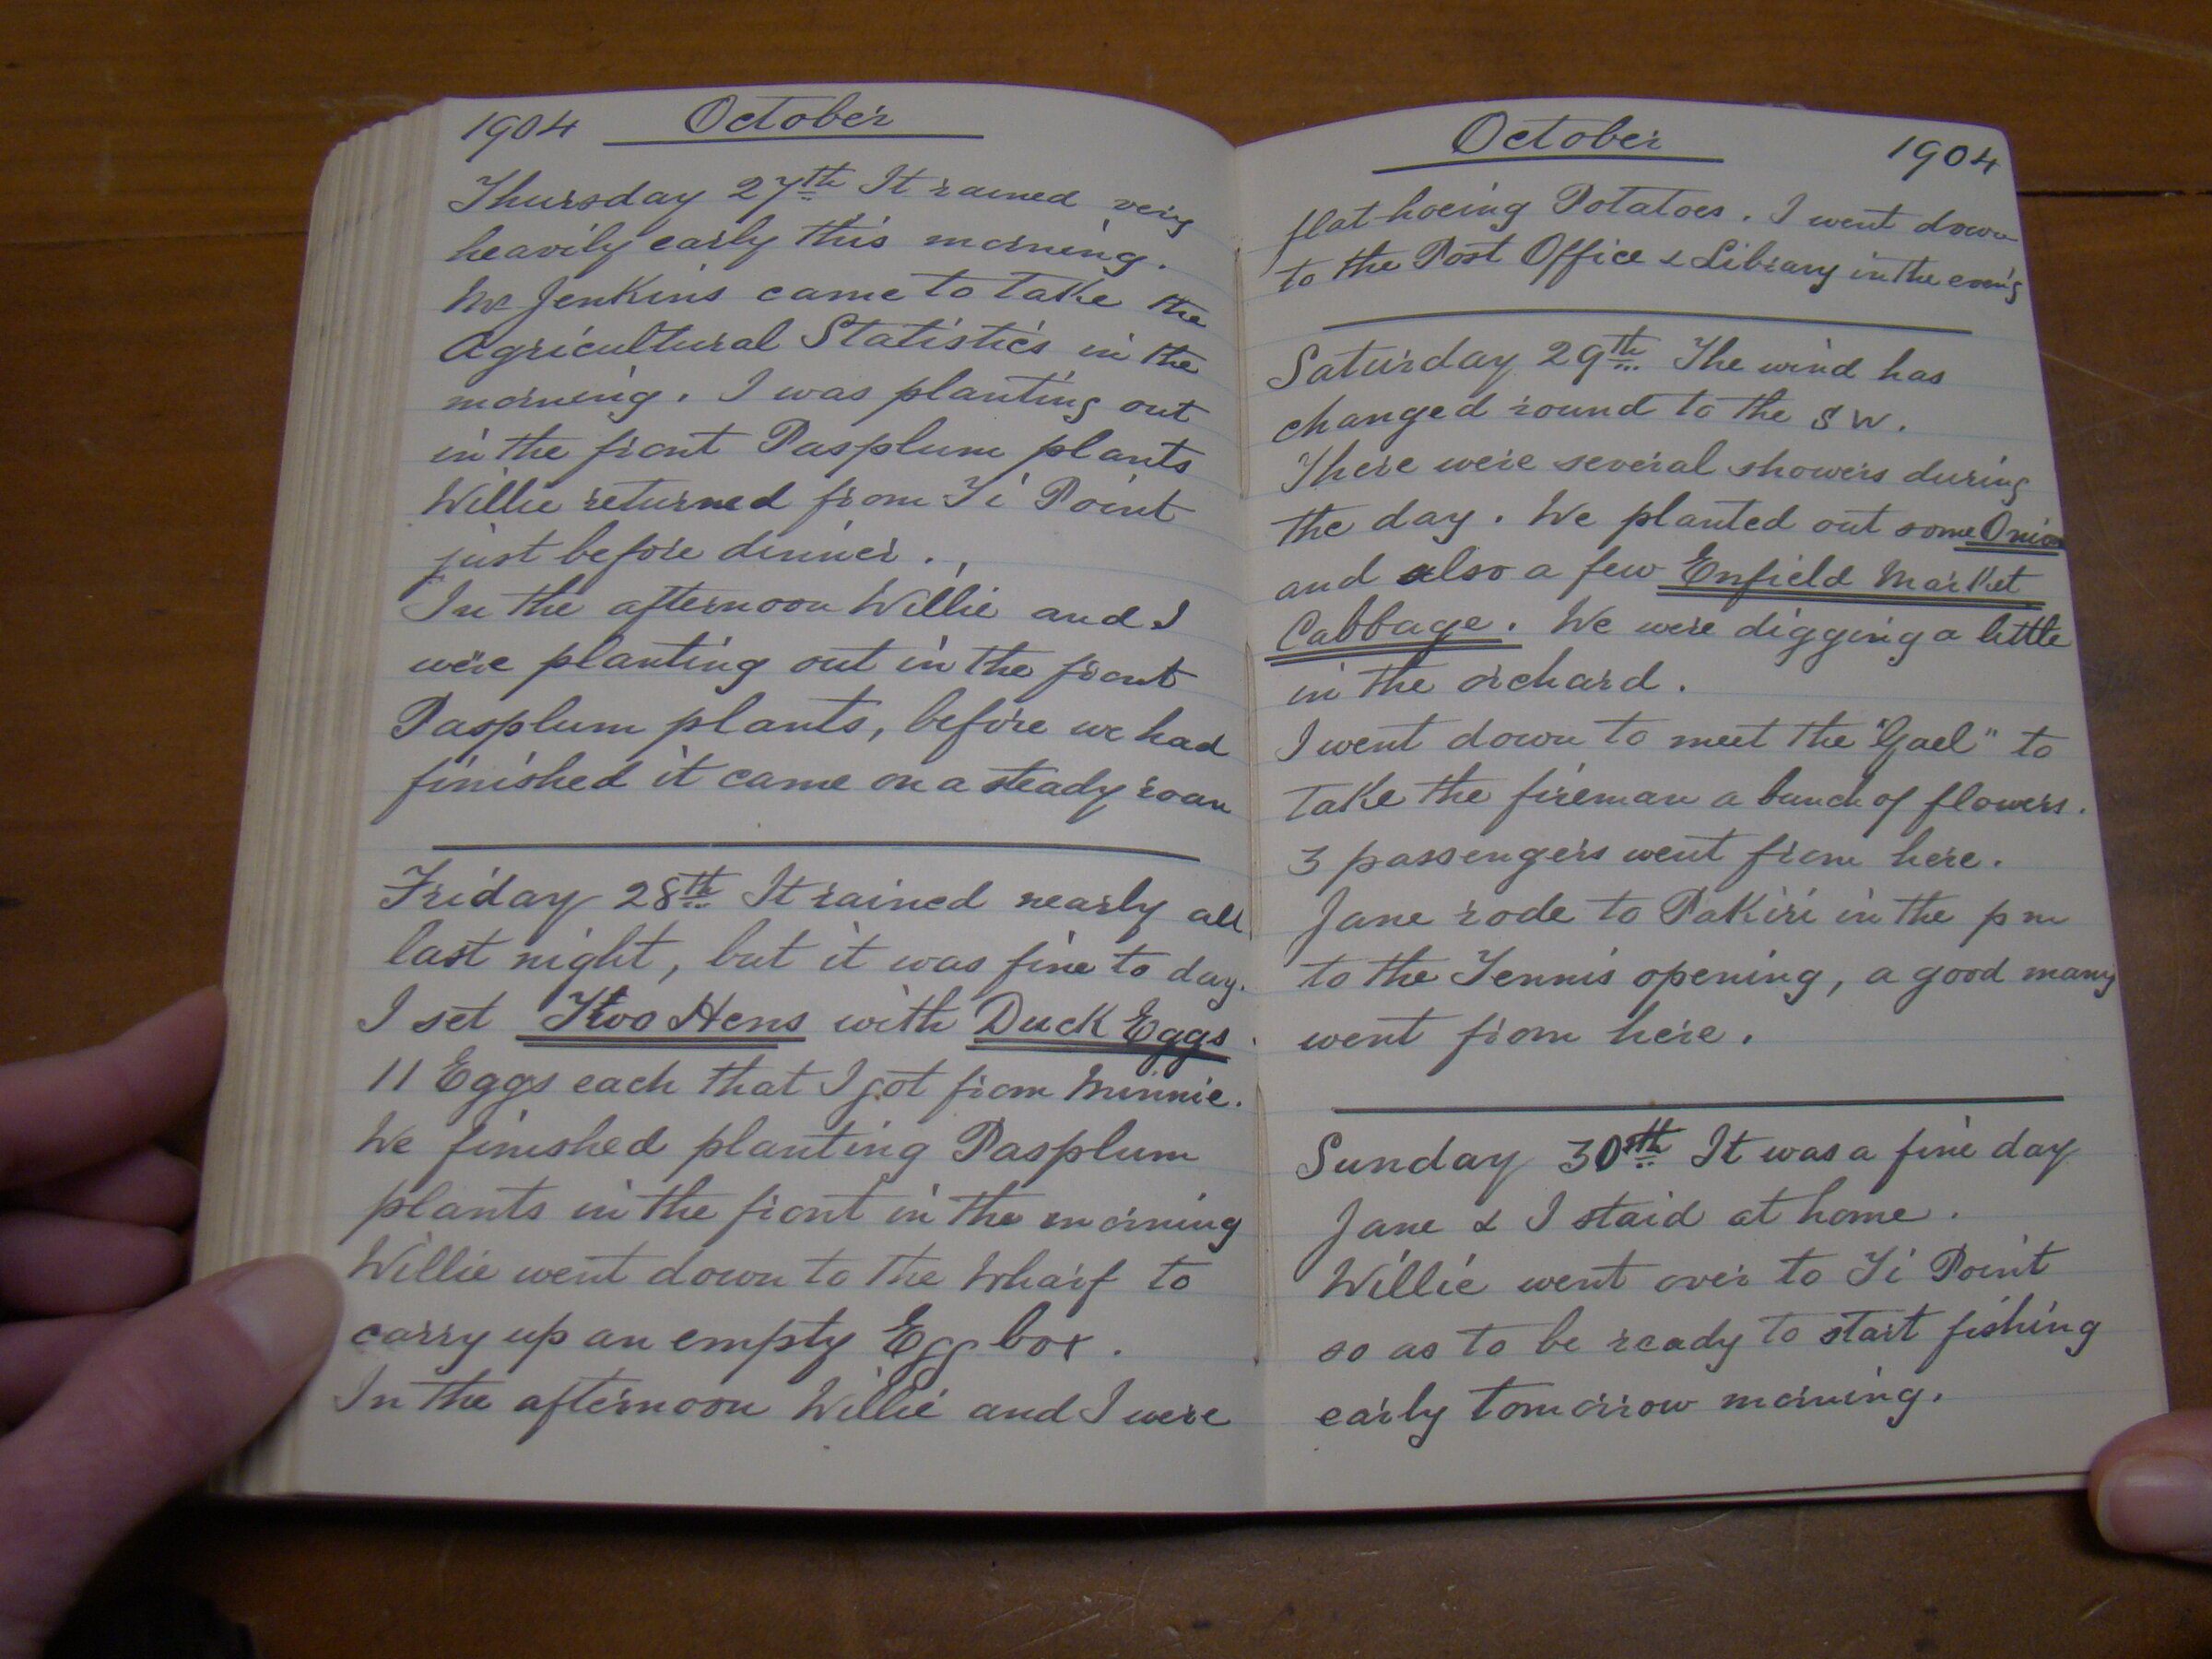 1904 October
Thursday 27th It rained very
heavily early this morning.
Mr Jenkins came to take the
Agricultural Statistics in the
morning. I was planting out
in the front Pasplum plants
Willie returned from Ti Point
just before dinner.
In the afternoon Willie and I
were planting out in the front
Pasplum plants, before we had
finished it came on a steady roan
Friday 28th It rained nearly all
last night, but it was fine to day.
I set Two Hens with Duck Eggs.
11 Eggs each that I got from Minnie.
We finished planting Pasplum
plants in the front in the morning
Willie went down to the Wharf to
carry up an empty Egg box.
In the afternoon Willie and I were
October 1904
flat hoeing Potatoes. I went down
to the Post Office & Library in the even'g
Saturday 29th The wind has
changed round to the SW.
There were several showers during
the day. We planted out some Onion
and also a few Enfield Market
Cabbage. We were digging a little
in the orchard.
I went down to meet the "Gael" to
take the fireman a bunch of flowers.
3 passengers went from here.
Jane rode to Pakiri in the pm
to the Tennis opening, a good many
went from here.
Sunday 30th It was a fine day
Jane & I staid at home.
Willie went over to Ti Point
so as to be ready to start fishing
early tomorrow morning.